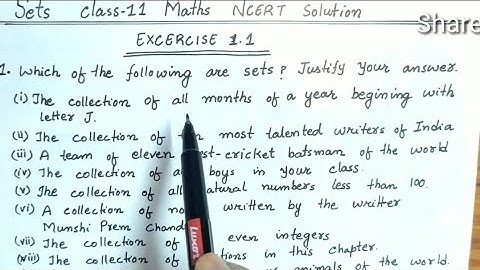 Sets Class-11 Maths NCERT Solution
Share
EXCERCISE 1.1
1. Which of the following are sets? Justify your answer.
(i) The collection of all months of a year begining with
letter J.
(ii) The collection of most talented writers of India
(iii) A team of eleven cricket batsman of the world
(iv) The collection of boys in your class.
(v) The collection of all natural numbers less than 100.
(vi) A collection of written by the writter
Munshi Prem Chand
(vii) The collection of even integers
(viii) The collection of in this chapter.
animals of the world.